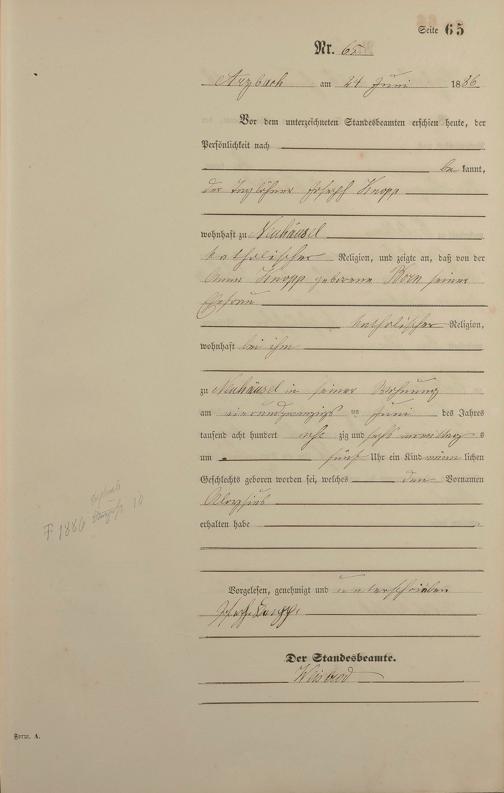 Seite 65
Nr. 65
Arzbach am 24 Juni 1886
Vor dem unterzeichneten Standesbeamten erschien heute, der
Persönlichkeit nach
be kannt,
der Taglöhner Joseph Knopp
wohnhaft zu Neuhäusel
katholischer Religion, und zeigte an, daß von der
Anna Knopp geborene Born seiner
Ehefrau
katholischer Religion,
wohnhaft bei ihm
zu Neuhäusel in seiner Wohnung
am vierundzwanzigsten Juni des Jahres
tausend acht hundert acht zig und sechs vormittag s
um fünf Uhr ein Kind männ lichen
Geschlechts geboren worden sei, welches den Vornamen
Aloysius
erhalten habe
Vorgelesen, genehmigt und unterschrieben
Joseph Knopp
Der Standesbeamte.
Form. A.
† 1886